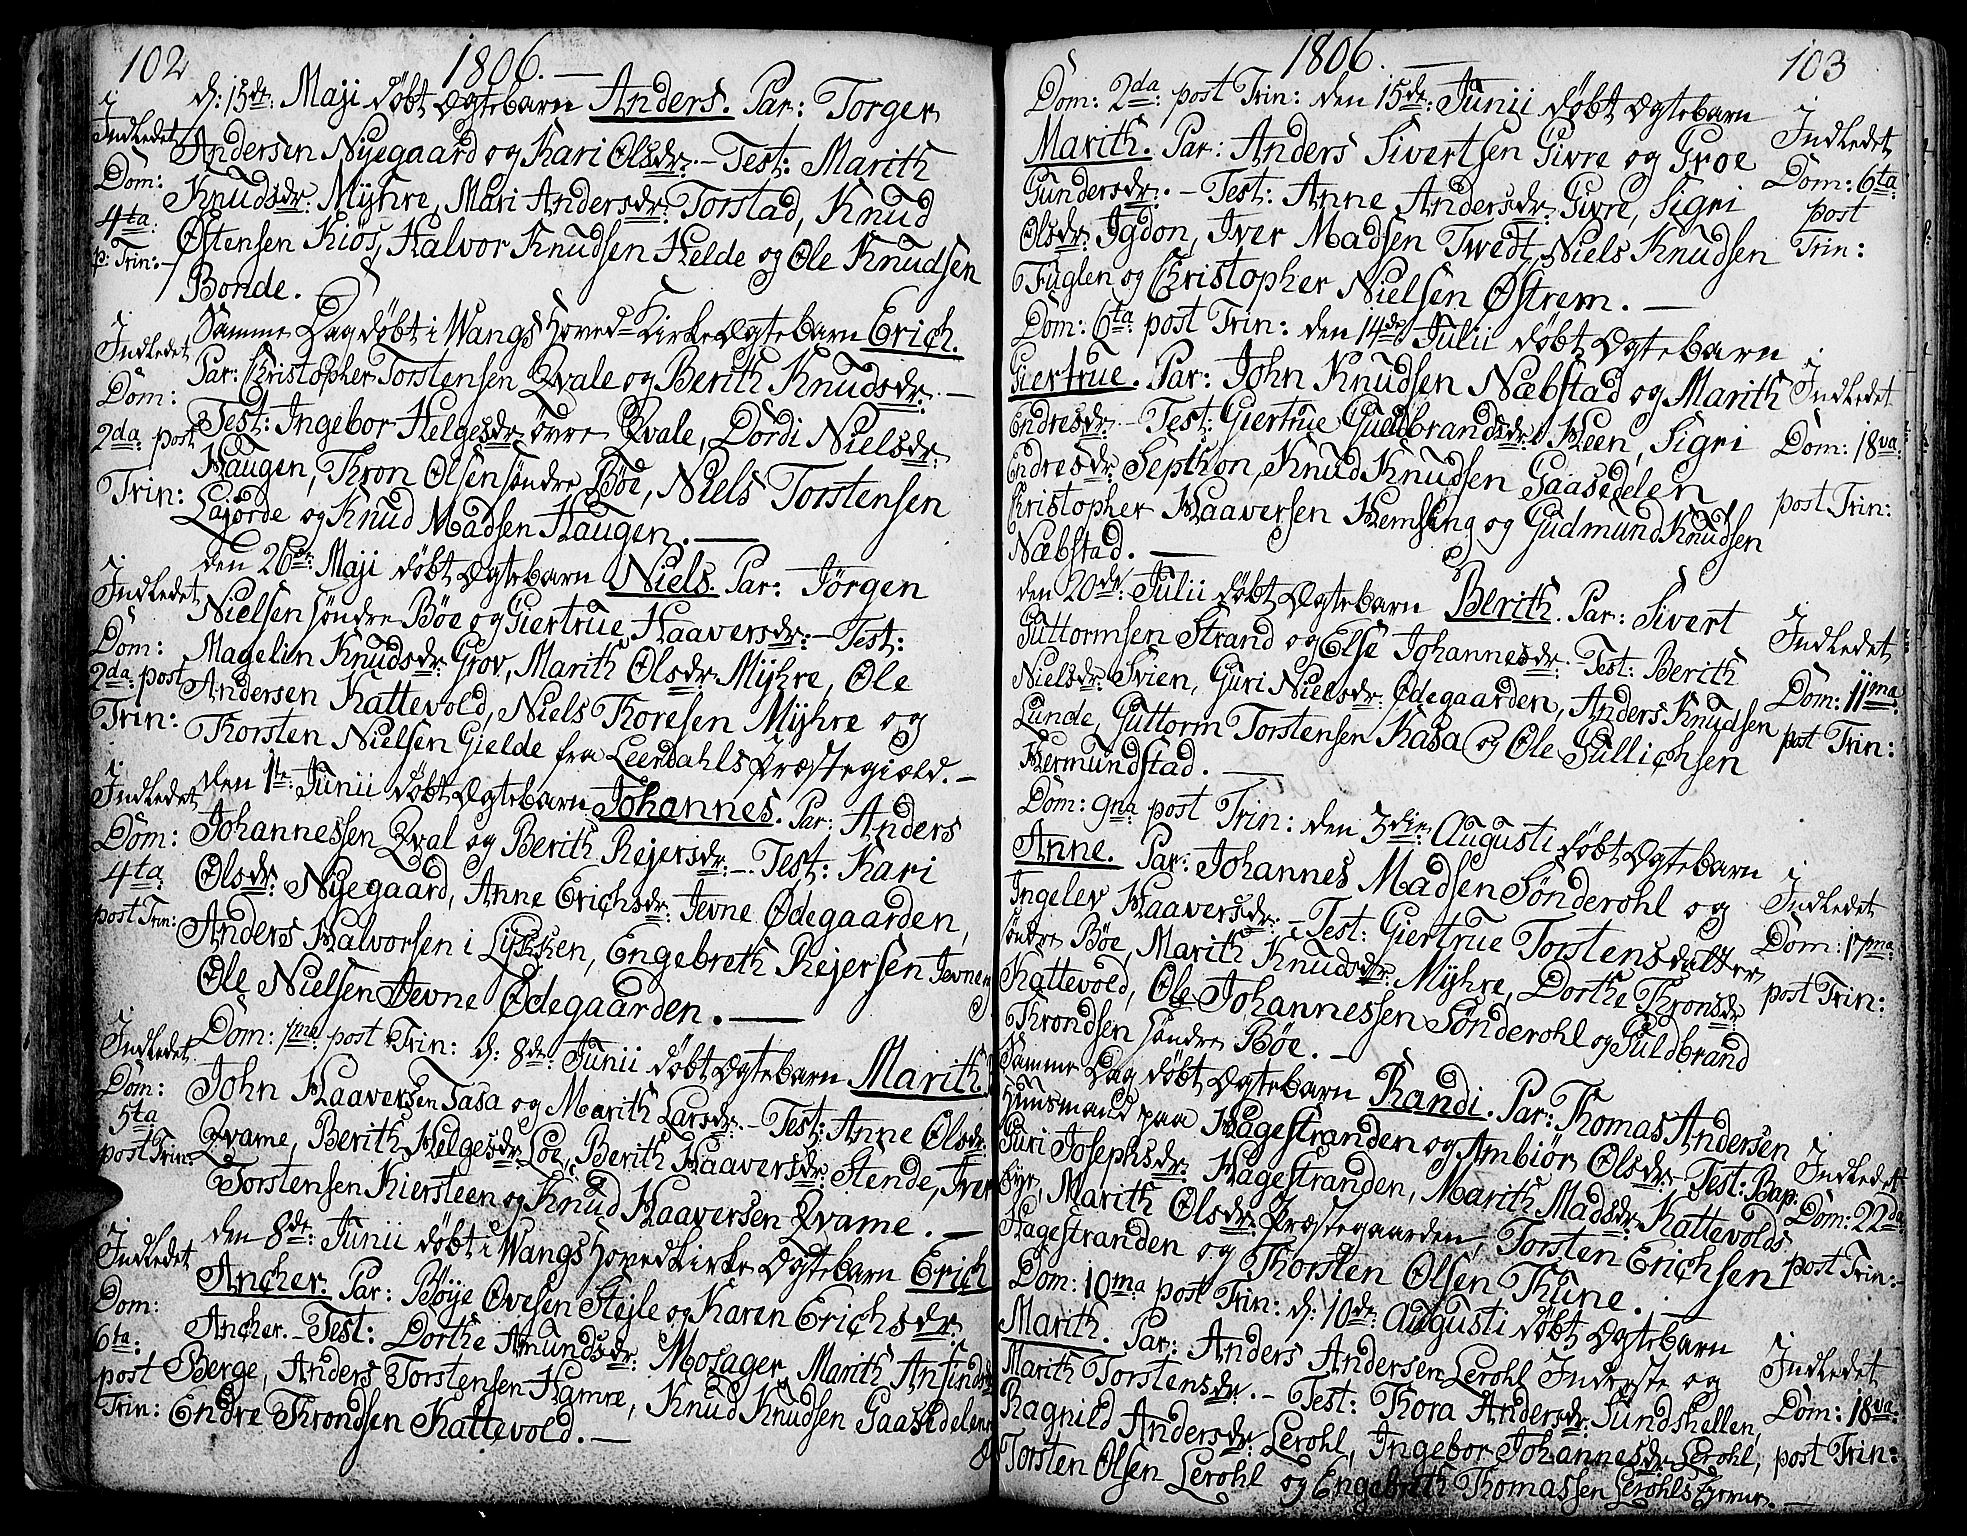 102
1806. —
d: 15de: Maji döbt Ægtebarn Anders. Par: Torger
Andersen Nyegaard og Kari Olsdr: — Test: Marith
Knudsdr: Myhre, Mari Andersdr: Torstad, Knud
Østensen Kiøs, Halvor Knudsen Helde og Ole Knudsen
Bonde.
Indledet
Dom:
4ta:
p: Trin: —
Samme Dag döbt i Wangs Hoved Kirke Ægtebarn Erich.
Par: Christopher Torstensen Qvale og Berith Knudsdr: —
Test: Ingebor Helgesdr: övre Qvale, Dordi Nielsdr:
Haugen, Thron Olsen söndre Böe, Niels Torstensen
Lajorde og Knud Madsen Haugen. —
Indledet
Dom:
2da post
Trin:
den 26de: Maji döbt Ægtebarn Niels. Par: Jörgen
Nielsen söndre Böe og Giertrue Haaversdr: — Test:
Magelin Knudsdr: Grov, Marith Olsdr: Myhre, Ole
Andersen Kattevold, Niels Thoresen Myhre og
Thorsten Nielsen Gielde fra Leerdahls Præstegiæld. —
Indledet
Dom:
2da: post
Trin:
den 1te: Junii döbt Ægtebarn Johannes. Par: Anders
Johannessen Qval og Berith Rejersdr: — Test: Kari
Olsdr: Nyegaard, Anne Erichsdr: Jevne Ødegaarden,
Anders Halvorsen i Lykken, Engebreth Rejersen Jevne og
Ole Nielsen Jevne Ødegaarden. —
Indledet
Dom:
4ta
post Trin:
Dom: 1ma post Trin: d: 8de: Junii döbt Ægtebarn Marith.
John Haaversen Sasa og Marith Larsdr: — Test: Anne Olsdr:
Qvame, Berith Helgesdr: Loe, Berith Haaversdr: Stende, Iver
Torstensen Kiersteen og Knud Haaversen Qvame. —
Indledet
Dom:
5ta
post Trin:
den 8de: Junii döbt i Wangs Hoved Kirke Ægtebarn Erich
Ancher. Par: Böye Ovesen Stejle og Karen Erichsdr:
Ancher. — Test: Dorthe Amundsdr: Mosager, Marith Anfindsdr:
Berge, Anders Torstensen Hamre, Knud Knudsen Gaasedelen og
Endre Throndsen Kattevold. —
Indledet
Dom:
6ta:
post
Trin:
1806. —
103
Dom: 2da: post Trin: den 15de: Junii döbt Ægtebarn
Marith. Par: Anders Sivertsen Givre og Groe
Gundersdr: — Test: Anne Andersdr: Givre, Sigri
Olsdr: Igdon, Iver Madsen Twedt, Niels Knudsen
Fuglen og Christopher Nielsen Østrem. —
Indledet
Dom: 6ta
post
Trin:
Dom: 6ta: post Trin: den 14de Julii döbt Ægtebarn
Giertrue. Par: John Knudsen Næbstad og Marith
Endresdr: — Test: Giertrue Gudbrandsdr: Heen, Sigri
Endresdr: Septhon, Knud Knudsen Gaasedelen
Christopher Haaversen Hemsing og Gudmund Knudsen
Næbstad. —
Indledet
Dom: 18va:
post Trin:
den 20de: Julii döbt Ægtebarn Berith. Par: Sivert
Guttormsen Strand og Else Johannesdr: Test: Berith
Nielsdr: Svien, Guri Nielsdr: Ødegaarden, Anders Knudsen
Lunde, Guttorm Torstensen Kasa og Ole Gullichsen
Hermundstad. —
Indledet
Dom: 11ma:
post Trin:
Dom: 9na post Trin: den 3die Augusti döbt Ægtebarn
Anne. Par: Johannes Madsen Sönderohl og
Ingelev Haaversdr: — Test: Giertrue Torstensdatter
söndre Böe, Marith Knudsdr: Myhre, Dorthe Thronsdr:
Kattevold, Ole Johannessen Sönderohl og Guldbrand
Throndsen söndre Böe. —
Indledet
Dom: 17ma
post Trin:
Samme Dag döbt Ægtebarn Randi. Par: Thomas Andersen
Huusmand paa Hagestranden og Ambiör Olsdr: — Test: Bap:
Guri Josephsdr: Hagestranden, Marith Madsdr: Kattevolds
Eyr, Marith Olsdr: Præstegaarden, Torsten Erichsen
Hagestranden og Thorsten Olsen Thune. —
Indledet
Dom: 22da
post Trin: —
Dom: 10ma post Trin: d: 10de Augusti döbt Ægtebarn
Marith. Par: Anders Andersen Lerohl Inderste og
Marith Torstensdr: — Test: Thora Andersdr: Sundshellen,
Ragnild Andersdr: Lerohl, Ingebor Johannesdr: Lerohl,
Torsten Olsen Lerohl og Engebreth Thomassen Lerohls
Indledet
Dom: 18va:
post Trin: